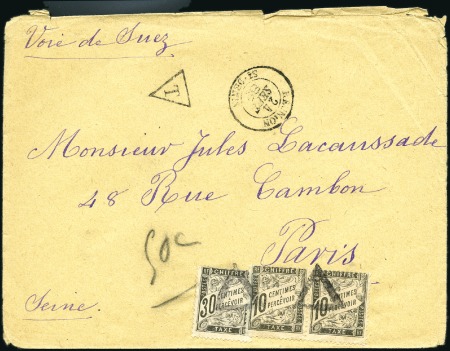 Voie de Suez
T
RÉUNION
ST-DENIS
Monsieur Jules Lacaussade
48 Rue Cambon
Paris
50c
Seine.
CHIFFRE
30 CENTIMES À PERCEVOIR
TAXE
CHIFFRE
10 CENTIMES À PERCEVOIR
TAXE
CHIFFRE
10 CENTIMES À PERCEVOIR
TAXE